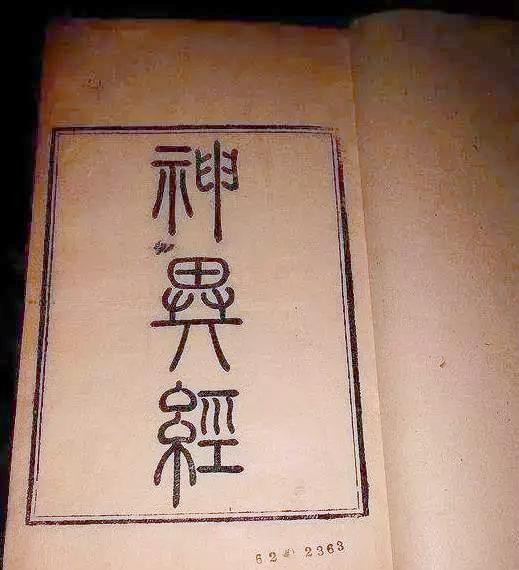 神異經
62 2363